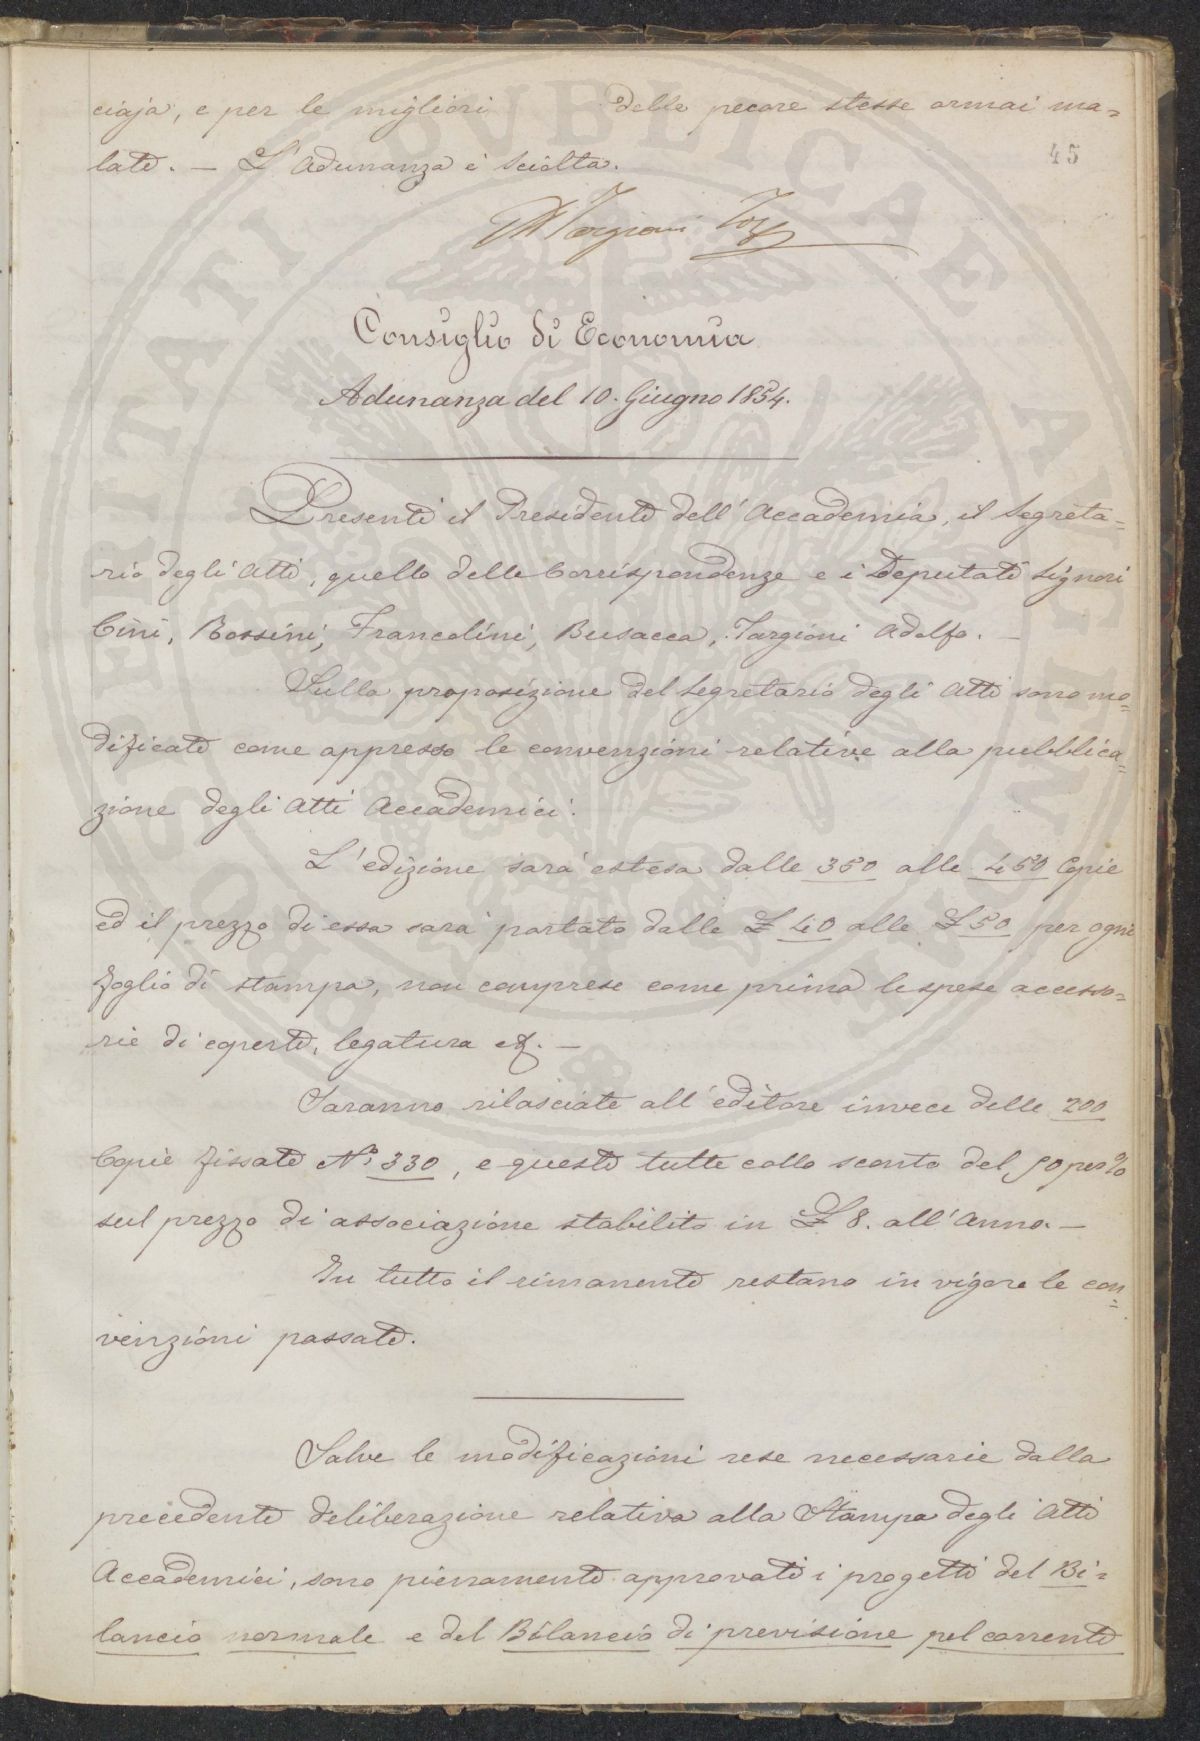 ciaja, e per le migliori delle pecore stesse ormai ma=
late. — L'Adunanza è sciolta.
45
Targioni Toz
Consiglio di Economia
Adunanza del 10. Giugno 1854.
Presenti il Presidente dell'Accademia, il Segreta=
rio degli Atti, quello delle Corrispondenze e i Deputati Signori
Cini, Bossini, Francolini, Busacca, Targioni Adolfo. —
Sulla proposizione del Segretario degli Atti sono mo=
dificate come appresso le convenzioni relative alla pubblica=
zione degli Atti Accademici.
L'edizione sarà estesa dalle 350 alle 450 Copie
ed il prezzo di essa sarà portato dalle £ 40 alle £ 50 per ogni
foglio di stampa, non comprese come prima le spese accesso=
rie di coperte, legatura &. —
Saranno rilasciate all'editore invece delle 200
Copie fissate N.° 330, e queste tutte collo sconto del 50 per %
sul prezzo di associazione stabilito in £ 8. all'Anno. —
In tutto il rimanente restano in vigore le con=
venzioni passate.
Salve le modificazioni rese necessarie dalla
precedente deliberazione relativa alla Stampa degli Atti
Accademici, sono pienamente approvati i progetti del Bi=
lancio normale e del Bilancio di previsione pel corrente
PROSPERITATI PVBLICAE AVGENDAE